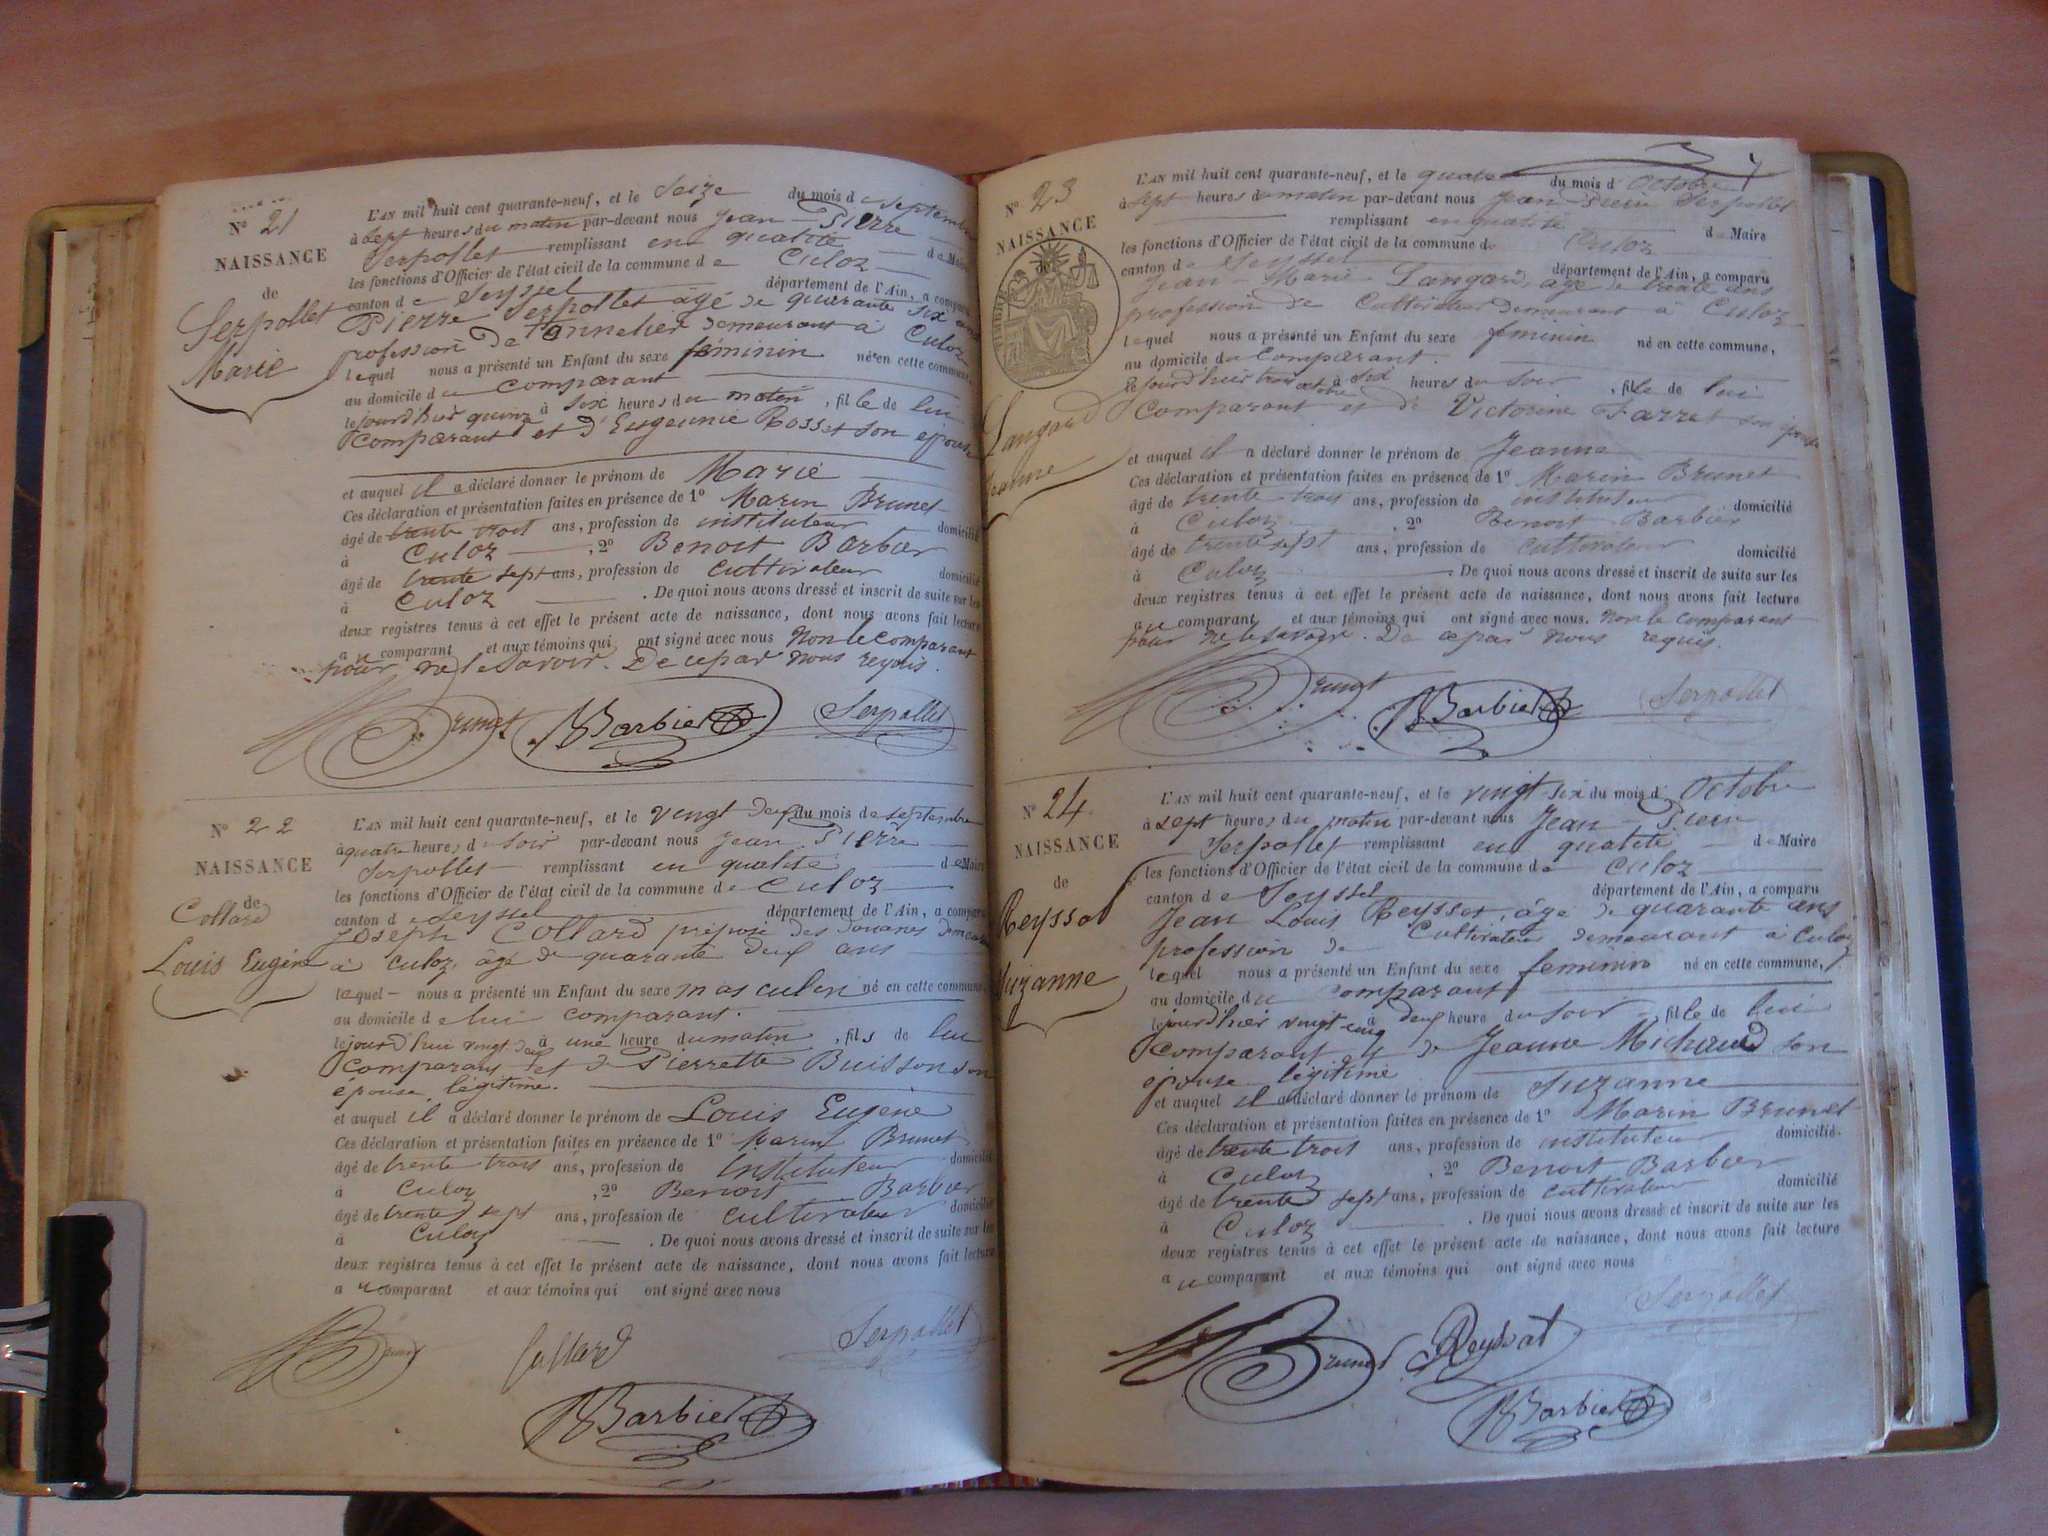 N° 21
NAISSANCE
de
Serpollet
Marie
L'AN mil huit cent quarante-neuf, et le Seize du mois d septembre
à sept heures du matin par-devant nous Jean-Pierre
Serpollet remplissant en qualité de Maire
les fonctions d'Officier de l'état civil de la commune de Culoz
canton de Seyssel département de l'Ain, a comparu
Pierre Serpollet âgé de quarante six ans
profession de Tonnelier demeurant à Culoz
lequel nous a présenté un Enfant du sexe féminin né en cette commune,
au domicile du comparant
le jourd'hier quinze à six heures du matin, fille de lui
Comparant et d'Eugeunie Rosset son épouse
et auquel il a déclaré donner le prénom de Marie
Ces déclaration et présentation faites en présence de 1° Marin Brunet
âgé de trente trois ans, profession de instituteur domicilié
à Culoz, 2° Benoit Barbier
âgé de trente sept ans, profession de cultivateur domicilié
à Culoz. De quoi nous avons dressé et inscrit de suite sur les
deux registres tenus à cet effet le présent acte de naissance, dont nous avons fait lecture
au comparant et aux témoins qui ont signé avec nous Non le comparant
pour ne le savoir. De ce par nous requis.
Brunet Barbier Serpollet
N° 22
NAISSANCE
de
Collard
Louis Eugène
L'AN mil huit cent quarante-neuf, et le vingt deux du mois de septembre
à quatre heures du soir par-devant nous Jean Pierre
Serpollet remplissant en qualité de Maire
les fonctions d'Officier de l'état civil de la commune de Culoz
canton de Seyssel département de l'Ain, a comparu
Joseph Collard préposé des douanes demeurant
à Culoz, âgé de quarante deux ans
lequel nous a présenté un Enfant du sexe masculin né en cette commune,
au domicile de lui comparant.
le jourd'hui vingt deux à une heure du matin, fils de lui
Comparant et de Pierrette Buisson son
épouse légitime.
et auquel il a déclaré donner le prénom de Louis Eugène
Ces déclaration et présentation faites en présence de 1° Marin Brunet
âgé de trente trois ans, profession de Instituteur domicilié
à Culoz, 2° Benoit Barbier
âgé de trente sept ans, profession de cultivateur domicilié
à Culoz. De quoi nous avons dressé et inscrit de suite sur les
deux registres tenus à cet effet le présent acte de naissance, dont nous avons fait lecture
au comparant et aux témoins qui ont signé avec nous
Brunet Collard Serpollet
Barbier
N° 23
NAISSANCE
de
TIMBRE
Langard
Jeanne
L'AN mil huit cent quarante-neuf, et le quatre du mois d'Octobre
à sept heures du matin par-devant nous Jean-Pierre Serpollet
remplissant en qualité de Maire
les fonctions d'Officier de l'état civil de la commune de Culoz
canton de Seyssel département de l'Ain, a comparu
Jean-Marie Langard, âgé de trente ans
profession de Cultivateur demeurant à Culoz
lequel nous a présenté un Enfant du sexe féminin né en cette commune,
au domicile du Comparant.
le jourd'hier trois octobre à six heures du soir, fille de lui
Comparant et de Victorine Farret son épouse
et auquel il a déclaré donner le prénom de Jeanne
Ces déclaration et présentation faites en présence de 1° Marin Brunet
âgé de trente trois ans, profession de instituteur domicilié
à Culoz, 2° Benoit Barbier
âgé de trente sept ans, profession de cultivateur domicilié
à Culoz. De quoi nous avons dressé et inscrit de suite sur les
deux registres tenus à cet effet le présent acte de naissance, dont nous avons fait lecture
au comparant et aux témoins qui ont signé avec nous. Non le comparant
pour ne le savoir. De ce par nous requis.
Brunet Barbier Serpollet
N° 24.
NAISSANCE
de
Reyssat
Suzanne
L'AN mil huit cent quarante-neuf, et le vingt-six du mois d'Octobre
à sept heures du matin par-devant nous Jean-Pierre
Serpollet remplissant en qualité de Maire
les fonctions d'Officier de l'état civil de la commune de Culoz
canton de Seyssel département de l'Ain, a comparu
Jean Louis Reyssat, âgé de quarante ans
profession de Cultivateur demeurant à Culoz
lequel nous a présenté un Enfant du sexe féminin né en cette commune,
au domicile du comparant
le jourd'hier vingt-cinq à deux heure du soir, fille de lui
comparant & de Jeanne Michaud son
épouse légitime
et auquel il a déclaré donner le prénom de Suzanne
Ces déclaration et présentation faites en présence de 1° Marin Brunet
âgé de trente trois ans, profession de instituteur domicilié
à Culoz, 2° Benoit Barbier
âgé de trente sept ans, profession de cultivateur domicilié
à Culoz. De quoi nous avons dressé et inscrit de suite sur les
deux registres tenus à cet effet le présent acte de naissance, dont nous avons fait lecture
au comparant et aux témoins qui ont signé avec nous
Serpollet
Brunet Reyssat
Barbier